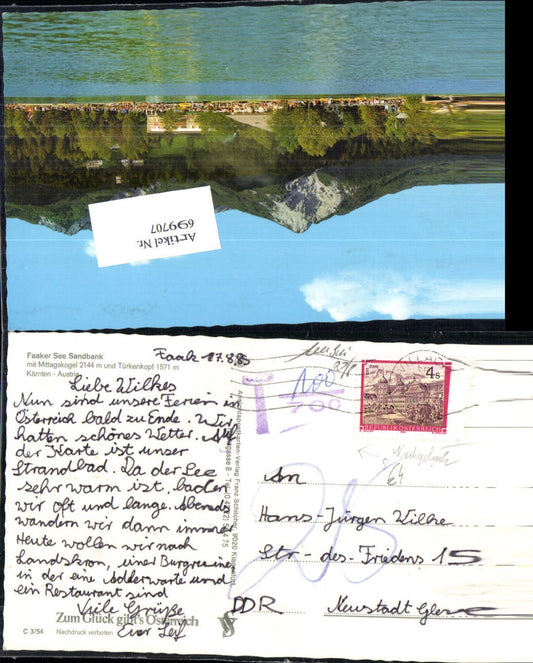 Artikel Nr.
699707
Faaker See Sandbank
mit Mittagskogel 2144 m und Türkenkopf 1571 m
Kärnten - Austria
Faak 17.8.85
Liebe Wilkes
Nun sind unsere Ferien in
Österreich bald zu Ende. Wir
hatten schönes Wetter. Auf
der Karte ist unser
Strandbad. Da der See
sehr warm ist, baden
wir oft und lange. Abends
wandern wir dann immer
Heute wollen wir nach
Landskron, einer Burgruine
in der eine Adlerwarte und
ein Restaurant sind
Viele Grüße
Euer
Zum Glück gibt's Österreich
C 3/54 Nachdruck verboten
Ansichtskarten-Verlag Franz Schilcher, 9020 Klagenfurt
T
100
700
4 S
REPUBLIK ÖSTERREICH
25
An
Hans-Jürgen Wilke
Str. des Friedens 15
DDR Neustadt